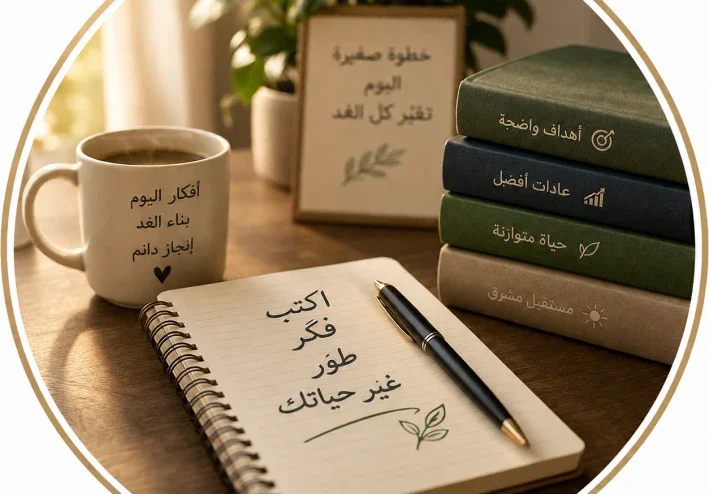 خطوة صغيرة
اليوم
تغيّر كل الغد
أهداف واضحة
عادات أفضل
حياة متوازنة
مستقبل مشرق
أفكار اليوم
بناء الغد
إنجاز دائم
اكتب
فكّر
طوّر
غيّر حياتك